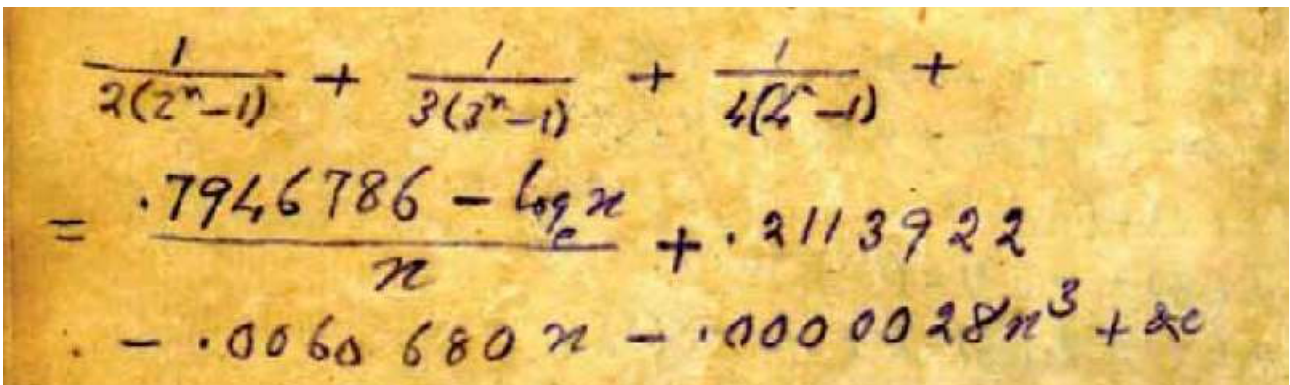 1/2(2ⁿ-1) + 1/3(3ⁿ-1) + 1/4(4ⁿ-1) +
= (.7946786 - logₑ n)/n + .2113922
- .0060680 n - .0000028n³ + &c